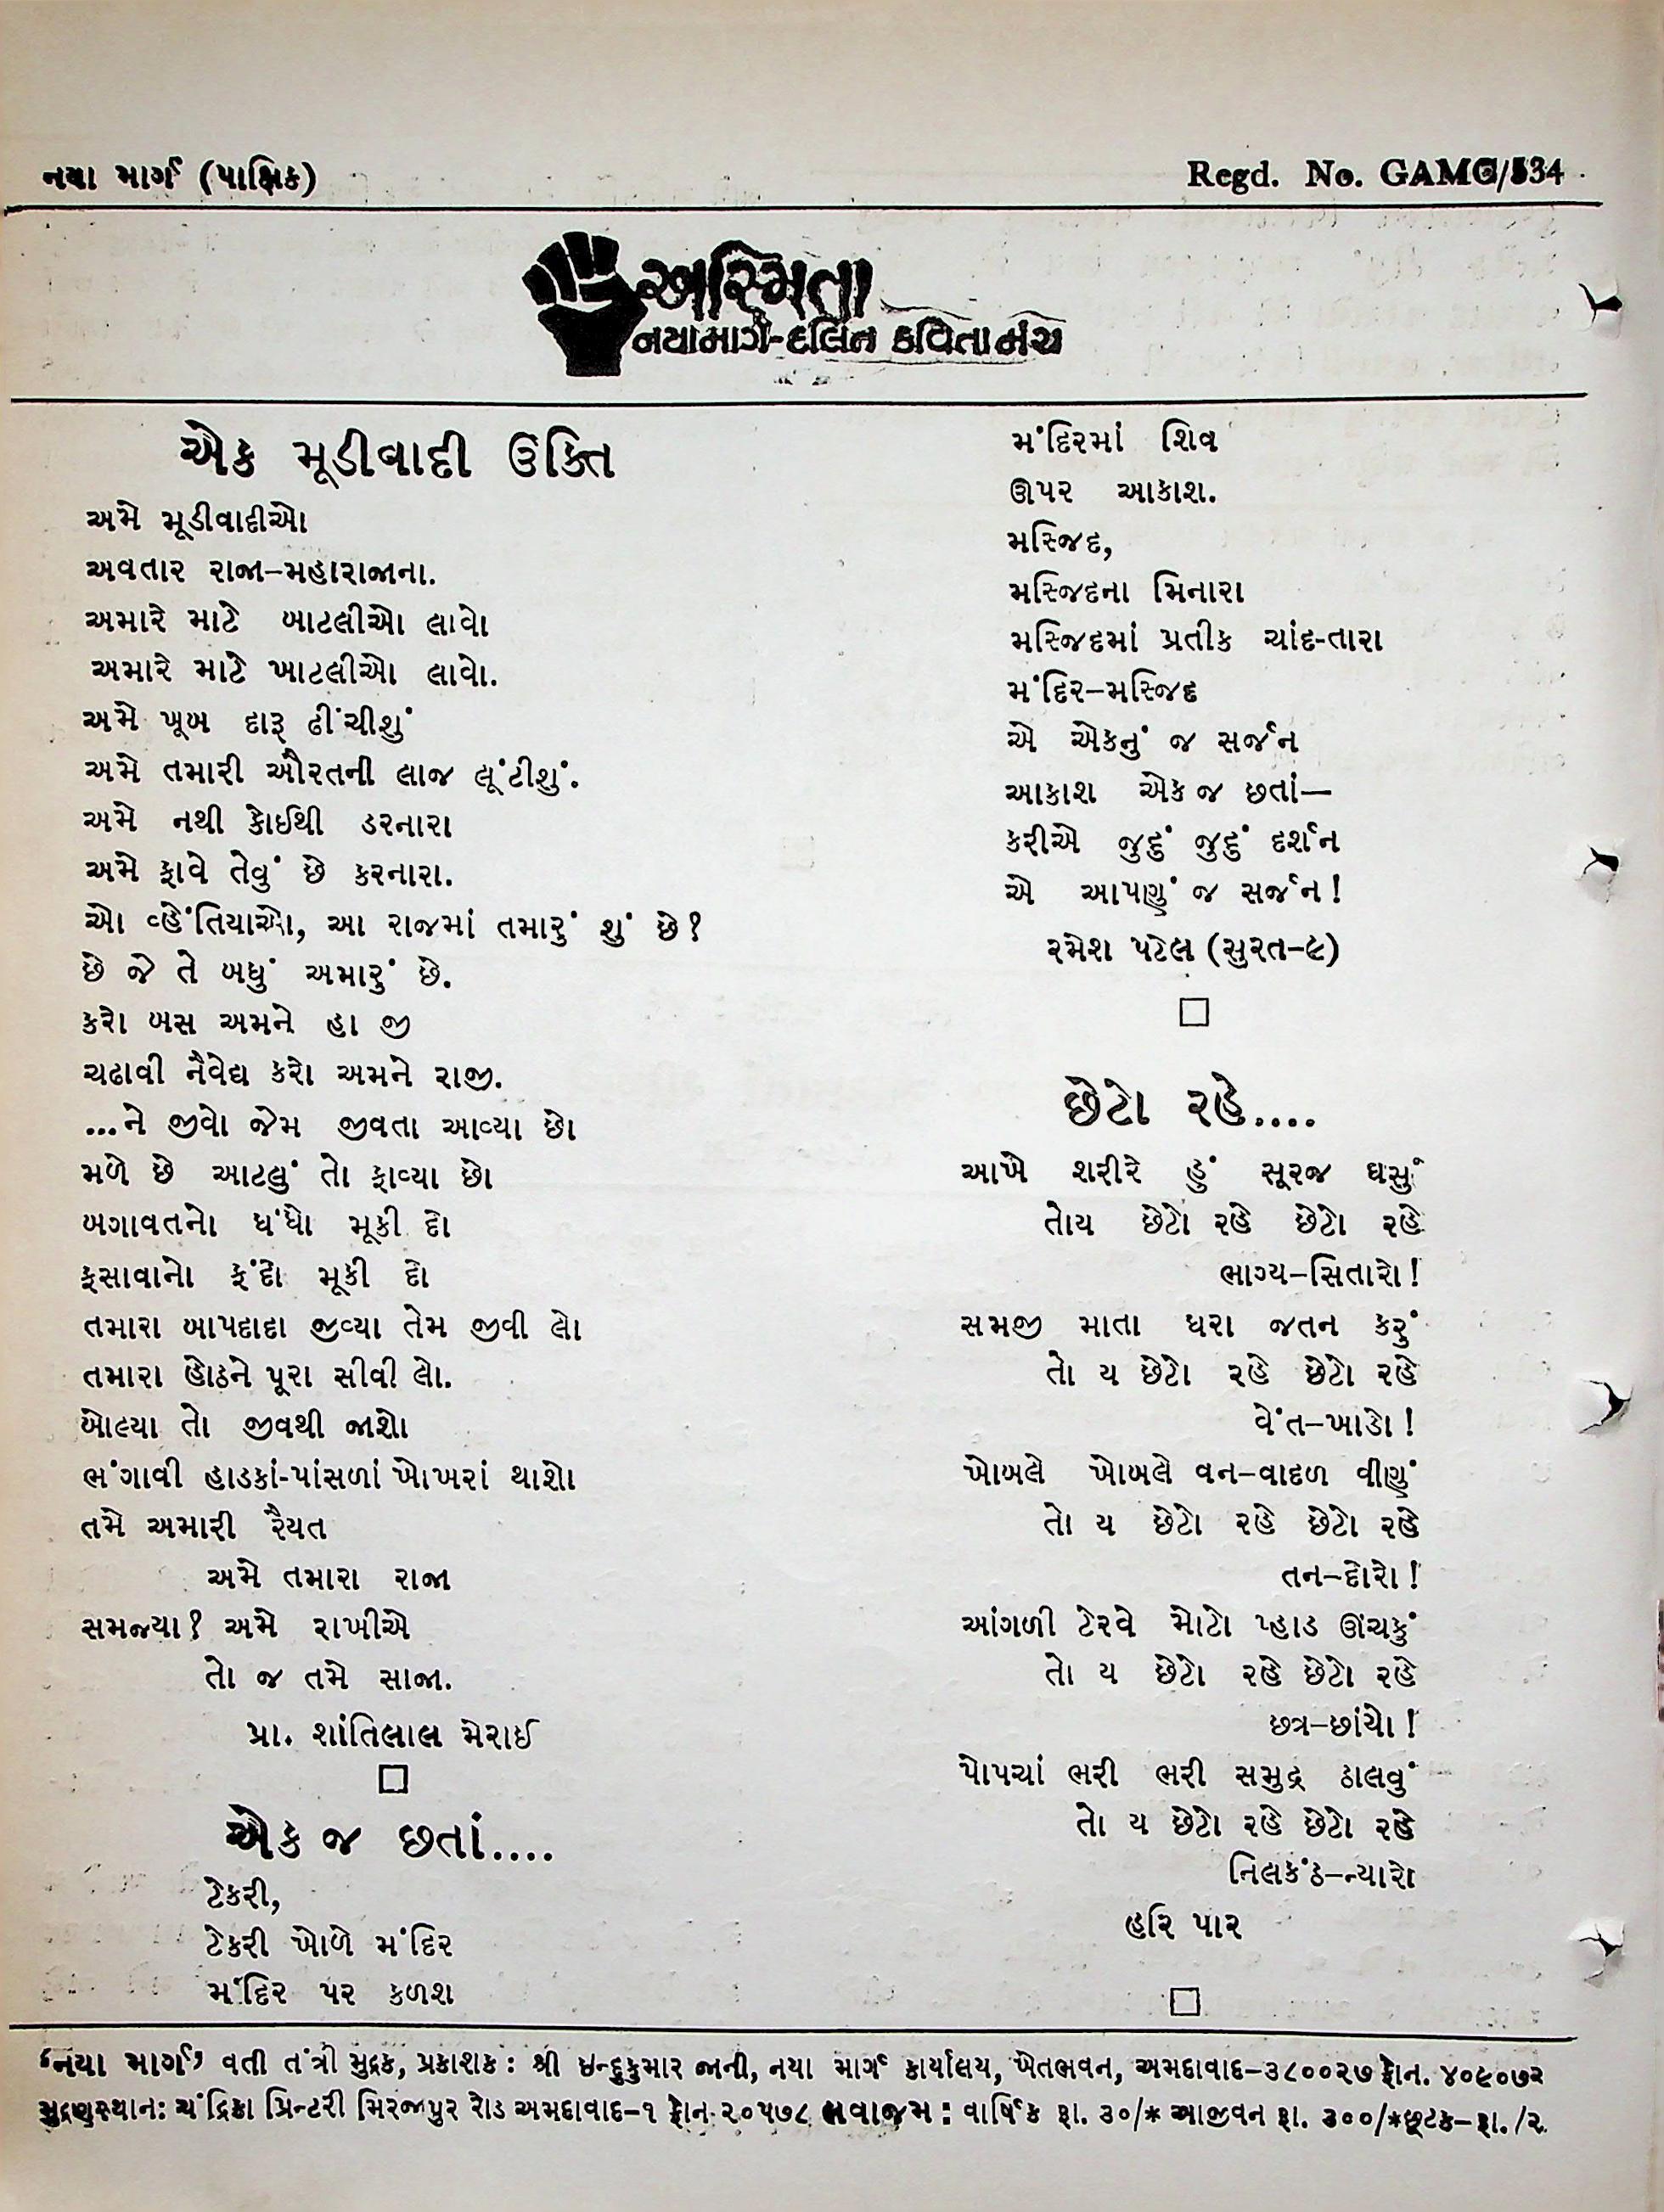 નયા માર્ગ (પાક્ષિક)
Regd. No. GAMC/534
અસ્મિતા
નયામાર્ગ-દલિત કવિતામંચ
એક મૂડીવાદી ઉક્તિ
અમે મૂડીવાદીઓ
અવતાર રાજા-મહારાજાના.
અમારે માટે બાટલીઓ લાવો
અમારે માટે ખાટલીઓ લાવો.
અમે ખૂબ દારૂ ઢીંચીશું
અમે તમારી ઔરતની લાજ લૂંટીશું.
અમે નથી કોઈથી ડરનારા
અમે ફાવે તેવું છે કરનારા.
ઓ વ્હેંતિયાઓ, આ રાજમાં તમારું શું છે?
છે જે તે બધું અમારું છે.
કરો બસ અમને હા જી
ચઢાવી નૈવેદ્ય કરો અમને રાજી.
...ને જીવો જેમ જીવતા આવ્યા છો
મળે છે આટલું તો ફાવ્યા છો
બગાવતનો ધંધો મૂકી દો
ફસાવાનો ફંદો મૂકી દો
તમારા બાપદાદા જીવ્યા તેમ જીવી લો
તમારા હોઠને પૂરા સીવી લો.
બોલ્યા તો જીવથી જાશો
ભંગાવી હાડકાં-પાંસળાં ખોખરાં થાશો
તમે અમારી રૈયત
અમે તમારા રાજા
સમજ્યા? અમે રાખીએ
તો જ તમે સાજા.
પ્રા. શાંતિલાલ મેરાઈ
એક જ છતાં....
ટેકરી,
ટેકરી ખોળે મંદિર
મંદિર પર કળશ
મંદિરમાં શિવ
ઊપર આકાશ.
મસ્જિદ,
મસ્જિદના મિનારા
મસ્જિદમાં પ્રતીક ચાંદ-તારા
મંદિર-મસ્જિદ
એ એકનું જ સર્જન
આકાશ એક જ છતાં—
કરીએ જુદું જુદું દર્શન
એ આપણું જ સર્જન!
રમેશ પટેલ (સુરત-૯)
છેટો રહે....
આખે શરીરે હું સૂરજ ઘસું
તોય છેટો રહે છેટો રહે
ભાગ્ય-સિતારો!
સમજી માતા ધરા જતન કરું
તો ય છેટો રહે છેટો રહે
વેંત-ખાડો!
ખોબલે ખોબલે વન-વાદળ વીણું
તો ય છેટો રહે છેટો રહે
તન-દોરો!
આંગળી ટેરવે મોટો પ્હાડ ઊંચકું
તો ય છેટો રહે છેટો રહે
છત્ર-છાંયો!
પોપચાં ભરી ભરી સમુદ્ર ઠાલવું
તો ય છેટો રહે છેટો રહે
નિલકંઠ-ન્યારો
હરિ પાર
'નયા માર્ગ' વતી તંત્રી મુદ્રક, પ્રકાશક: શ્રી ઇન્દુકુમાર જાની, નયા માર્ગ કાર્યાલય, ખેતભવન, અમદાવાદ-૩૮૦૦૨૭ ફોન. ૪૦૯૦૭૨
મુદ્રણસ્થાન: ચંદ્રિકા પ્રિન્ટરી મિરજાપુર રોડ અમદાવાદ-૧ ફોન: ૨૦૫૭૮ લવાજમ: વાર્ષિક રૂા. ૩૦/* આજીવન રૂા. ૩૦૦/*છૂટક- રૂા. /૨.